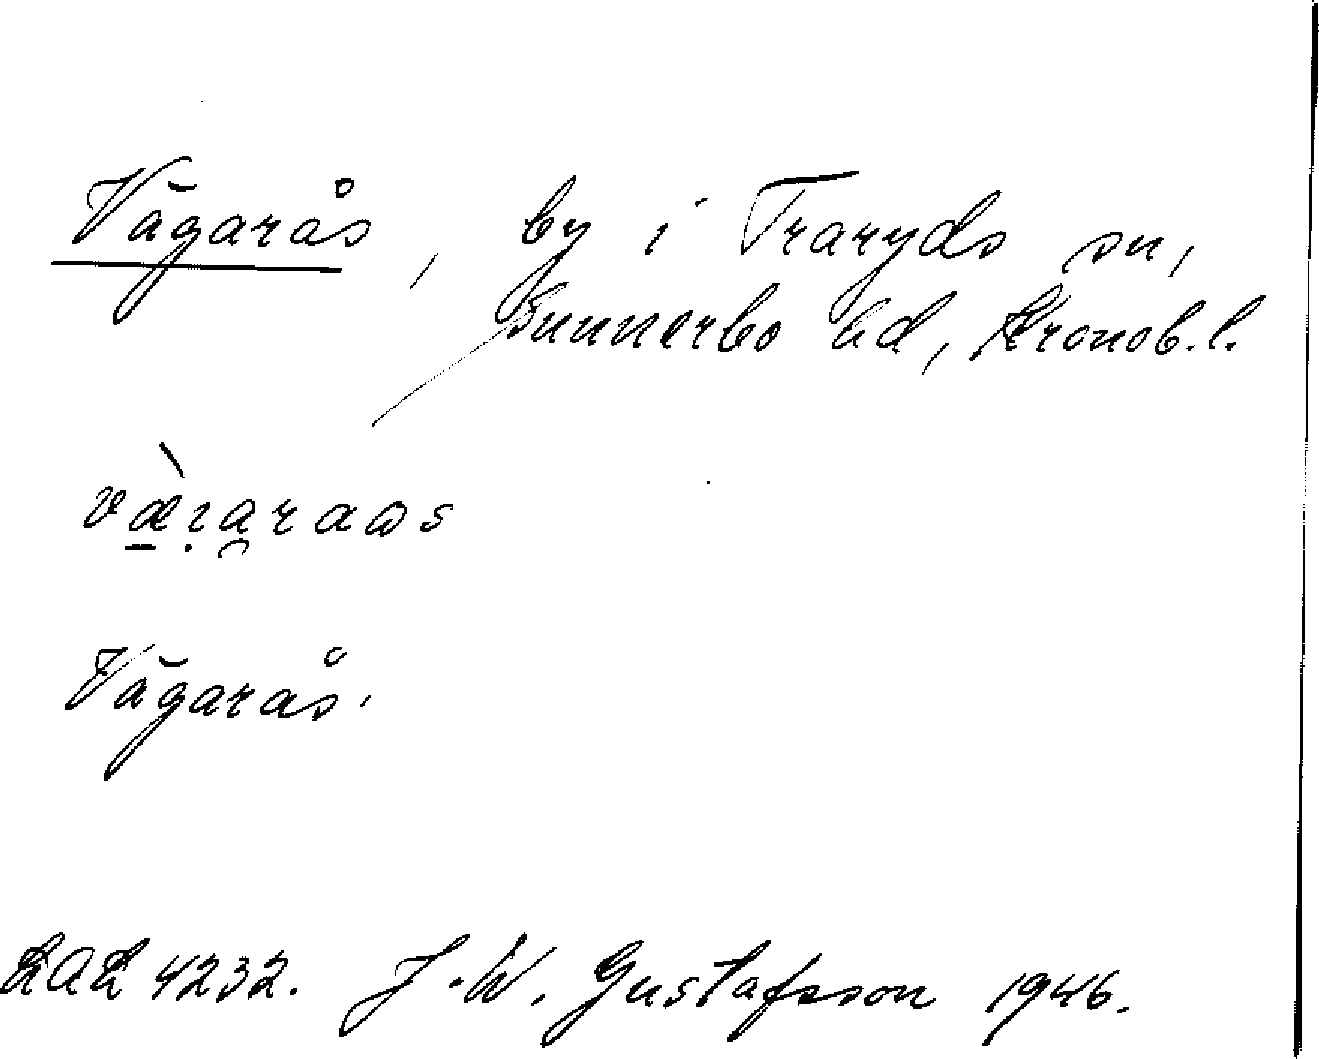 Vägarås, by i Traryds sn,
Sunnerbo hd, Kronob. l.
Vägarås.
LAL 4232. J. W. Gustafsson 1946.